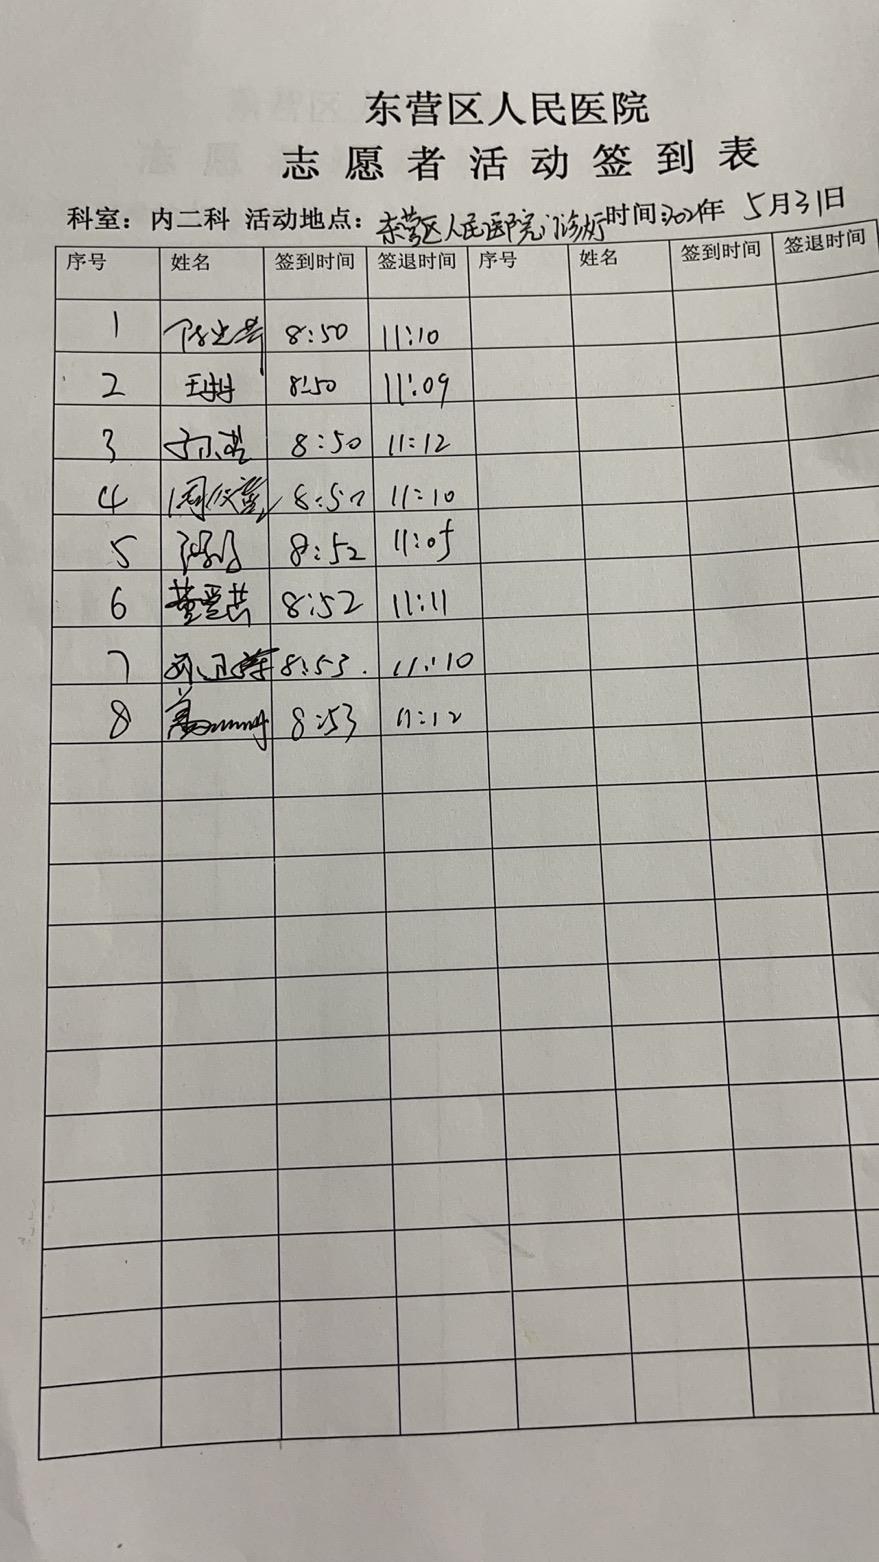 东营区人民医院
志愿者活动签到表
科室：内二科 活动地点：东营区人民医院门诊厅 时间: 年 5月31日
序号 姓名 签到时间 签退时间 序号 姓名 签到时间 签退时间
1 8:50 11:10
2 8:50 11:09
3 8:50 11:12
4 11:10
5 8:52 11:05
6 董翠芸 8:52 11:11
7 8:53 11:10
8 8:53 11:12